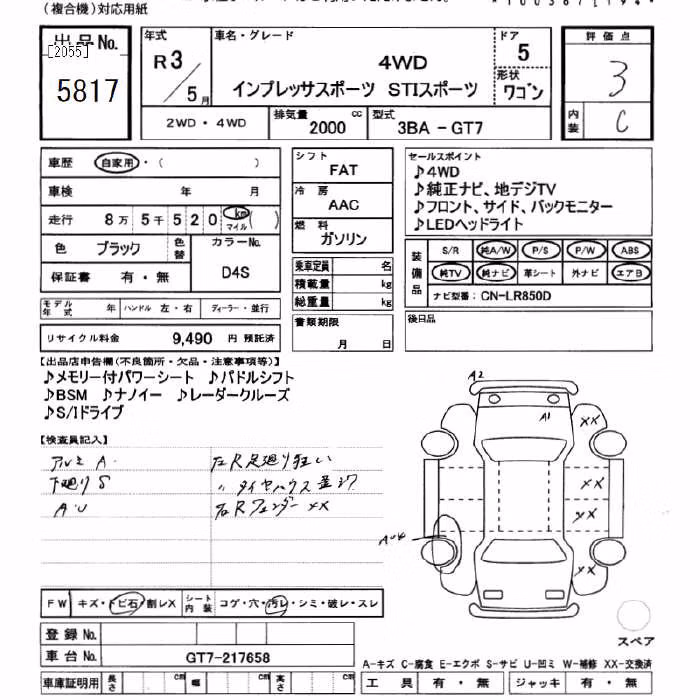 (複合機)対応用紙
出品No.
[2055]
5817
年式
R3/5月
車名・グレード
4WD
インプレッサスポーツ STIスポーツ
ドア
5
形状
ワゴン
評価点
3
内装
C
2WD・4WD
排気量 2000 cc
型式 3BA - GT7
車歴 自家用・( )
車検 年 月
走行 8万5千520 km マイル ( )
色 ブラック 色替
カラーNo. D4S
保証書 有・無
モデル年式 年 ハンドル 左・右 ディーラー・並行
リサイクル料金 9,490 円 預託済
シフト
FAT
冷房
AAC
燃料
ガソリン
乗車定員 名
積載量 kg
総重量 kg
書類期限
月 日
セールスポイント
♪4WD
♪純正ナビ、地デジTV
♪フロント、サイド、バックモニター
♪LEDヘッドライト
装備品
S/R 純A/W P/S P/W ABS
純TV 純ナビ 革シート 外ナビ エアB
ナビ型番: CN-LR850D
後日品
【出品店申告欄(不良箇所・欠品・注意事項等)】
♪メモリー付パワーシート ♪パドルシフト
♪BSM ♪ナノイー ♪レーダークルーズ
♪S/Iドライブ
【検査員記入】
アルミ A.
下廻り S
A.U
右R足廻り狂い
〃 タイヤハウス 歪み
右Rフェンダー XX
A2
A1
XX
XX
XX
XX
FW キズ・トビ石・割レX
シート内装 コゲ・穴・汚レ・シミ・破レ・スレ
登録No.
車台No. GT7-217658
車庫証明用 長さ cm 幅 cm 高さ cm
スペア
A-キズ C-腐食 E-エクボ S-サビ U-凹ミ W-補修 XX-交換済
工具 有・無 ジャッキ 有・無